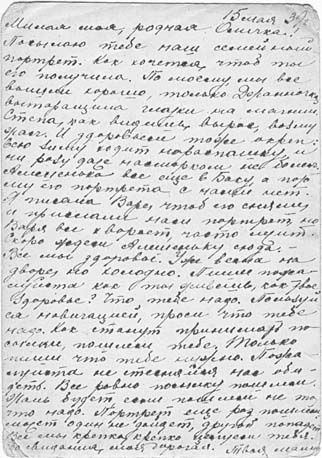 15 мая 3
Милая моя, родная Олечка!
Посылаю тебе наш семейный
портрет. Как хочется, чтоб ты
его получила. По моему мы все
вышли хорошо, только
вытаращила глазки на магний.
Степа, как видишь, вырос, возму
жал. И здоровьем тоже окреп:
всю зиму ходит нараспашку и
ни разу даже насморком не болел.
Аленушка все еще в Баку, а пор
му его портрета с нашей нет.
Я писала Варе, чтоб его сняли
и прислали наш портрет, но
Варя все хворает, часто
скоро Алешеньку сюда.
Все мы здоровы. Уже весна на
дворе, но холодно. Пиши пожа
луйста как ты живешь, как твое
здоровье? Что тебе надо.
с навигацией, проси что тебе
надо. Как станут принимать по
сылки, пошлем тебе. Только
пиши что тебе нужно. Пожа
луйста не стесняйся нас оби
деть. Все равно посылку пошлем.
Жаль будет если пошлем не то,
что надо. Портрет еще раз пошлем
может один не дойдет, другой попадет
Все мы крепко, крепко целуем тебя.
До свиданья, моя дорогая. Твоя мама